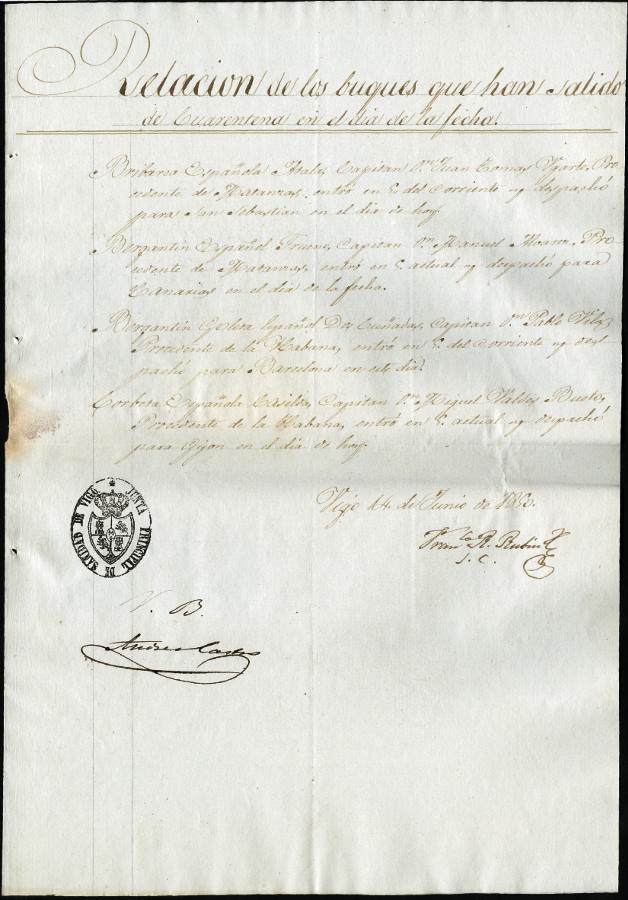 Relacion de los buques que han salido
de Cuarentena en el dia de la fecha.
Española Atala, Capitan Dn. Juan Tomas Ygarte, Pro-
cedente de Matanzas, entró en 5 del corriente y despachó
para San Sebastian en el dia de hoy.
Bergantin Español Capitan Dn. Manuel Alvarez, Pro-
cedente de Matanzas, entró en 5 actual y despachó para
Canarias en el dia de la fecha.
Bergantin Goleta Español Dos Cuñadas, Capitan Dn. Pablo
Procedente de la Habana, entró en 5 del corriente y des-
pachó para Barcelona en este dia.
Corbeta Española Casilda, Capitan Dn. Miguel Valdes Busto,
Procedente de la Habana, entró en 5 actual y despachó
para Gijon en el dia de hoy.
Vigo 14 de Junio de
Franco. R. Rubin
S. C.
JUNTA PRINCIPAL DE SANIDAD DE VIGO
V. B.
Andres